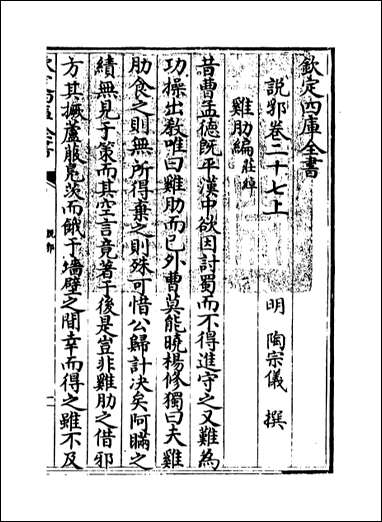 欽定四庫全書
說郛卷二十七上
明 陶宗儀 撰
雞肋編 莊綽
昔曹孟德既平漢中欲因討蜀而不得進守之又難為
功操出教唯曰雞肋而已外曹莫能曉楊修獨曰夫雞
肋食之則無所得棄之則殊可惜公歸計決矣阿瞞之
績無見于策而其空言竟著于後是豈非雞肋之借邪
方其撅蘆菔鳧茨而餓于墻壁之間幸而得之雖不及
說郛